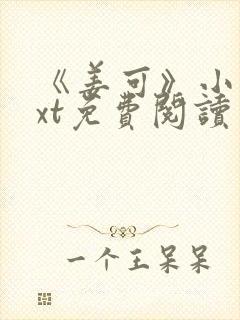 《姜可》小
xt免費閱讀
一个王呆呆